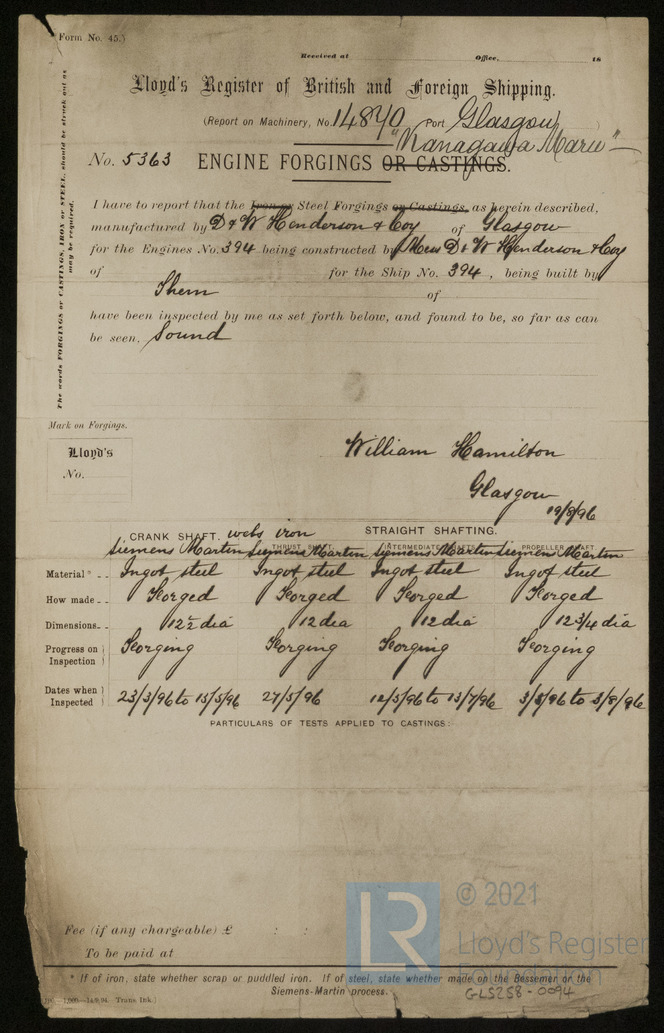 Form No. 45.
Received at Office, 18
Lloyd's Register of British and Foreign Shipping.
(Report on Machinery, No. 14870 Port Glasgow
"Kanagawa Maru"
No. 5363 ENGINE FORGINGS OR CASTINGS.
The words FORGINGS or CASTINGS, IRON or STEEL, should be struck out as may be required.
I have to report that the Iron or Steel Forgings or Castings, as herein described,
manufactured by D & W Henderson & Coy of Glasgow
for the Engines No. 394 being constructed by Mess D & W Henderson & Coy
of for the Ship No. 394, being built by
Them of
have been inspected by me as set forth below, and found to be, so far as can
be seen, Sound
Mark on Forgings.
Lloyd's
No.
William Hamilton
Glasgow
19/8/96
CRANK SHAFT. webs iron STRAIGHT SHAFTING.
THRUST SHAFT. INTERMEDIATE SHAFTS PROPELLER SHAFT
Siemens Martin Siemens Martin Siemens Martin Siemens Martin
Material* Ingot steel Ingot steel Ingot steel Ingot steel
How made Forged Forged Forged Forged
Dimensions 12½ dia 12 dia 12 dia 12 3/4 dia
Progress on Inspection Forging Forging Forging Forging
Dates when Inspected 23/3/96 to 15/5/96 27/5/96 12/5/96 to 13/7/96 3/8/96 to 3/8/96
PARTICULARS OF TESTS APPLIED TO CASTINGS:-
Fee (if any chargeable) £ : :
To be paid at
* If of iron, state whether scrap or puddled iron. If of steel, state whether made on the Bessemer or the
Siemens-Martin process.
14/9/94 Trans. Ink.)
LR
© 2021
Lloyd's Register
FOUNDATION
GLS258-0094